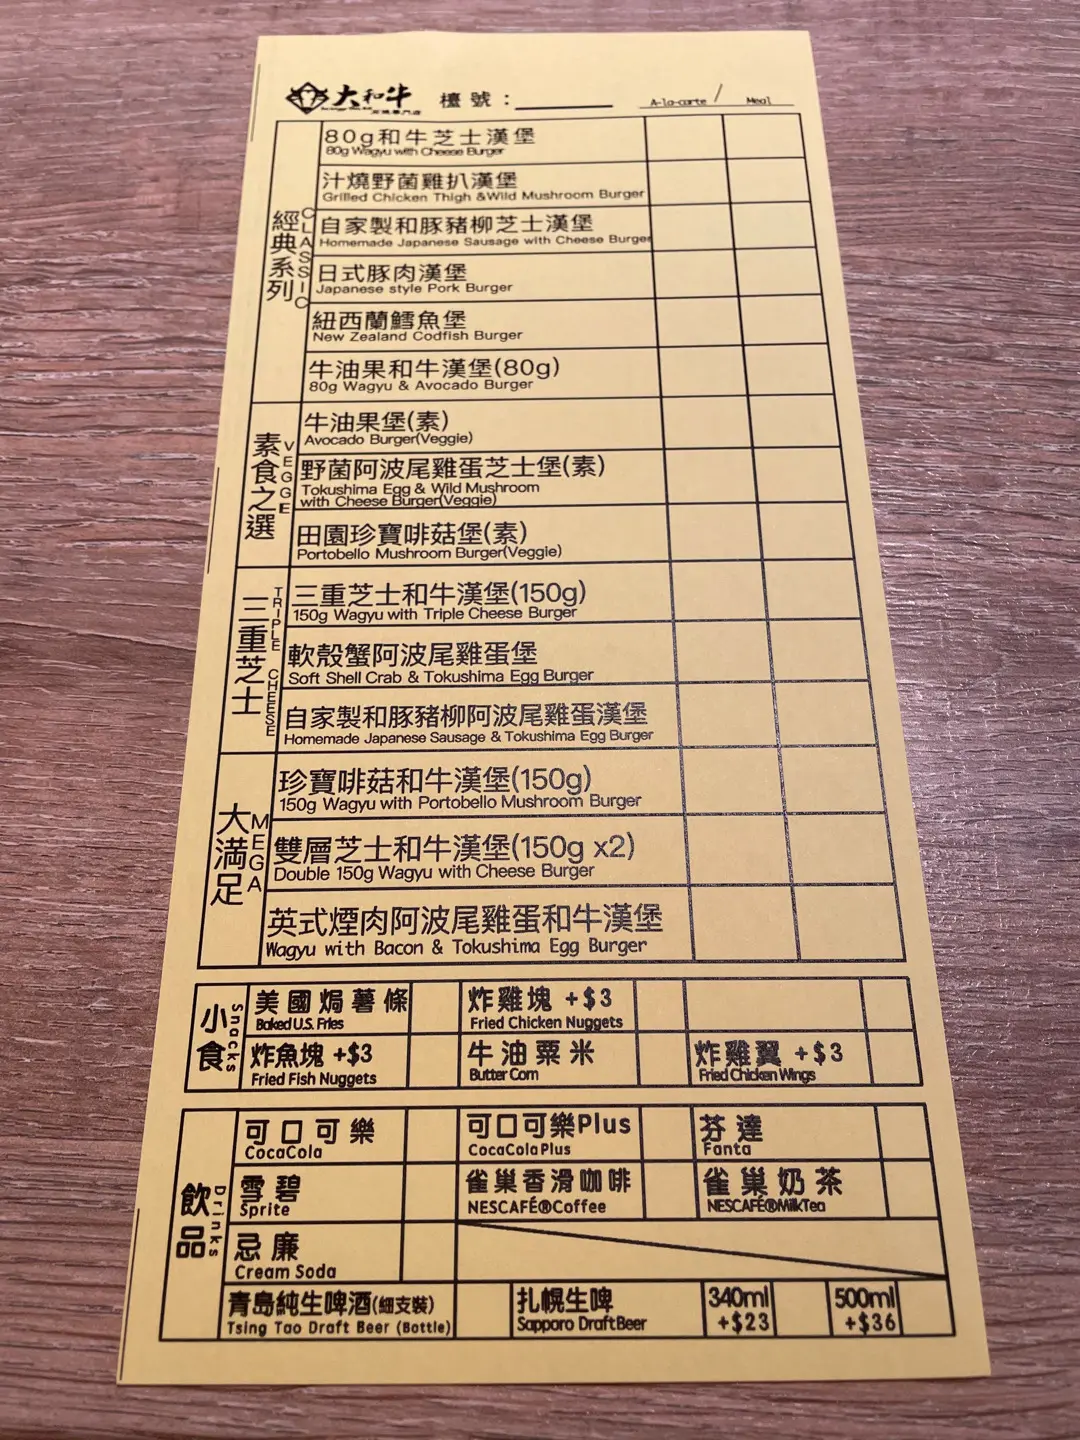 大和牛 檯號：
A-la-carte / Meal
經典系列 CLASSIC
80g和牛芝士漢堡
80g Wagyu with Cheese Burger
汁燒野菌雞扒漢堡
Grilled Chicken Thigh &Wild Mushroom Burger
自家製和豚豬柳芝士漢堡
Homemade Japanese Sausage with Cheese Burger
日式豚肉漢堡
Japanese style Pork Burger
紐西蘭鱈魚堡
New Zealand Codfish Burger
牛油果和牛漢堡(80g)
80g Wagyu & Avocado Burger
素食之選 VEGGE
牛油果堡(素)
Avocado Burger(Veggie)
野菌阿波尾雞蛋芝士堡(素)
Tokushima Egg & Wild Mushroom
with Cheese Burger(Veggie)
田園珍寶啡菇堡(素)
Portobello Mushroom Burger(Veggie)
三重芝士 TRIPLE CHEESE
三重芝士和牛漢堡(150g)
150g Wagyu with Triple Cheese Burger
軟殼蟹阿波尾雞蛋堡
Soft Shell Crab & Tokushima Egg Burger
自家製和豚豬柳阿波尾雞蛋漢堡
Homemade Japanese Sausage & Tokushima Egg Burger
大滿足 MEGA
珍寶啡菇和牛漢堡(150g)
150g Wagyu with Portobello Mushroom Burger
雙層芝士和牛漢堡(150g x2)
Double 150g Wagyu with Cheese Burger
英式煙肉阿波尾雞蛋和牛漢堡
Wagyu with Bacon & Tokushima Egg Burger
小食 Snacks
美國焗薯條
Baked U.S. Fries
炸雞塊 +$3
Fried Chicken Nuggets
炸魚塊 +$3
Fried Fish Nuggets
牛油粟米
Butter Corn
炸雞翼 +$3
Fried Chicken Wings
飲品 Drinks
可口可樂
CocaCola
可口可樂Plus
CocaCola Plus
芬達
Fanta
雪碧
Sprite
雀巢香滑咖啡
NESCAFÉ®Coffee
雀巢奶茶
NESCAFÉ®MilkTea
忌廉
Cream Soda
青島純生啤酒(細支裝)
Tsing Tao Draft Beer (Bottle)
扎幌生啤
Sapporo Draft Beer
340ml
+$23
500ml
+$36